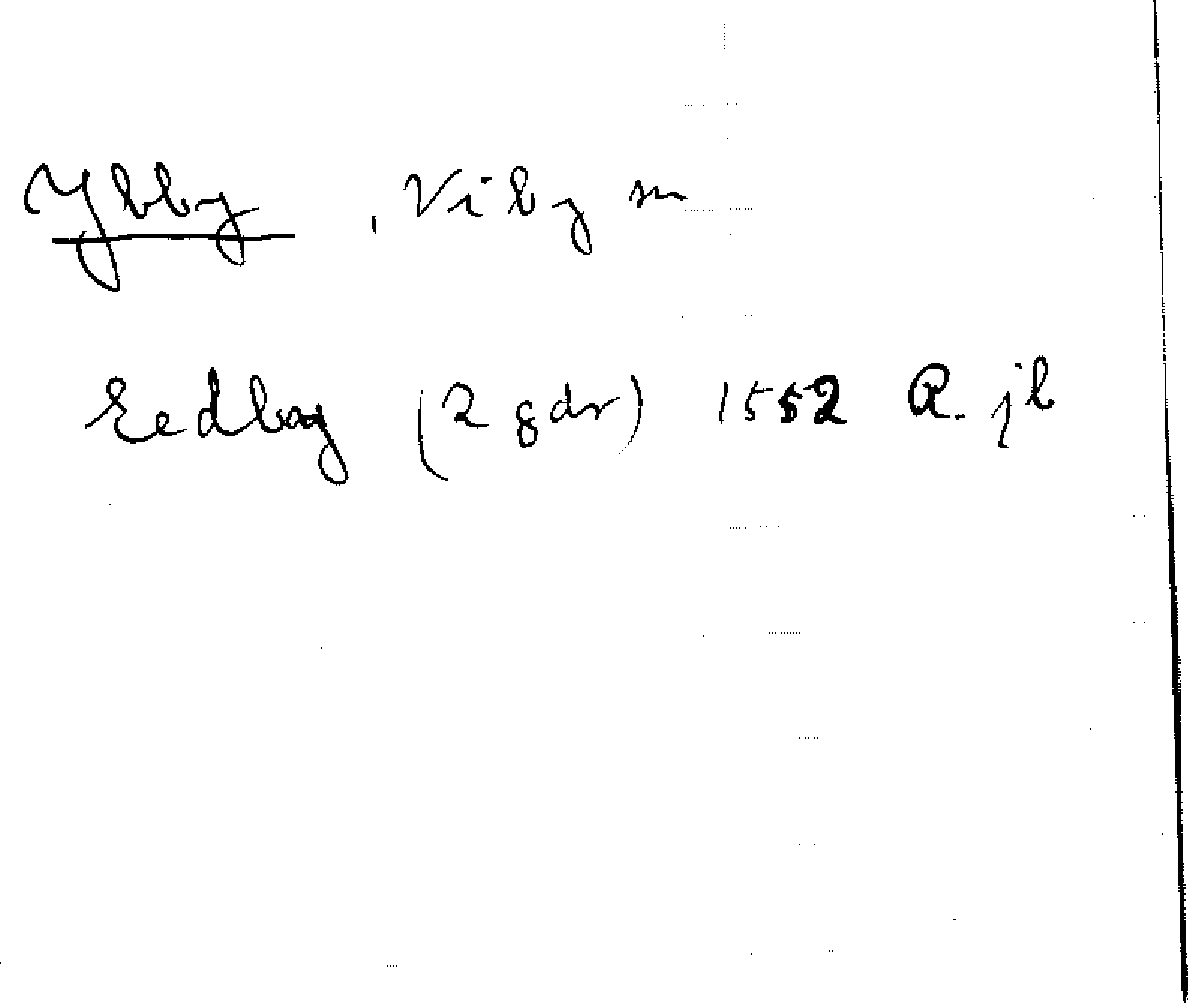 Ybby, Viby sn
Eedbag (2 gdr) 1552 R. jb